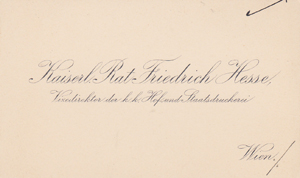 Kaiserl. Rat Friedrich Hesse,
Vizedirektor der k. k. Hof- und Staatsdruckerei
Wien.